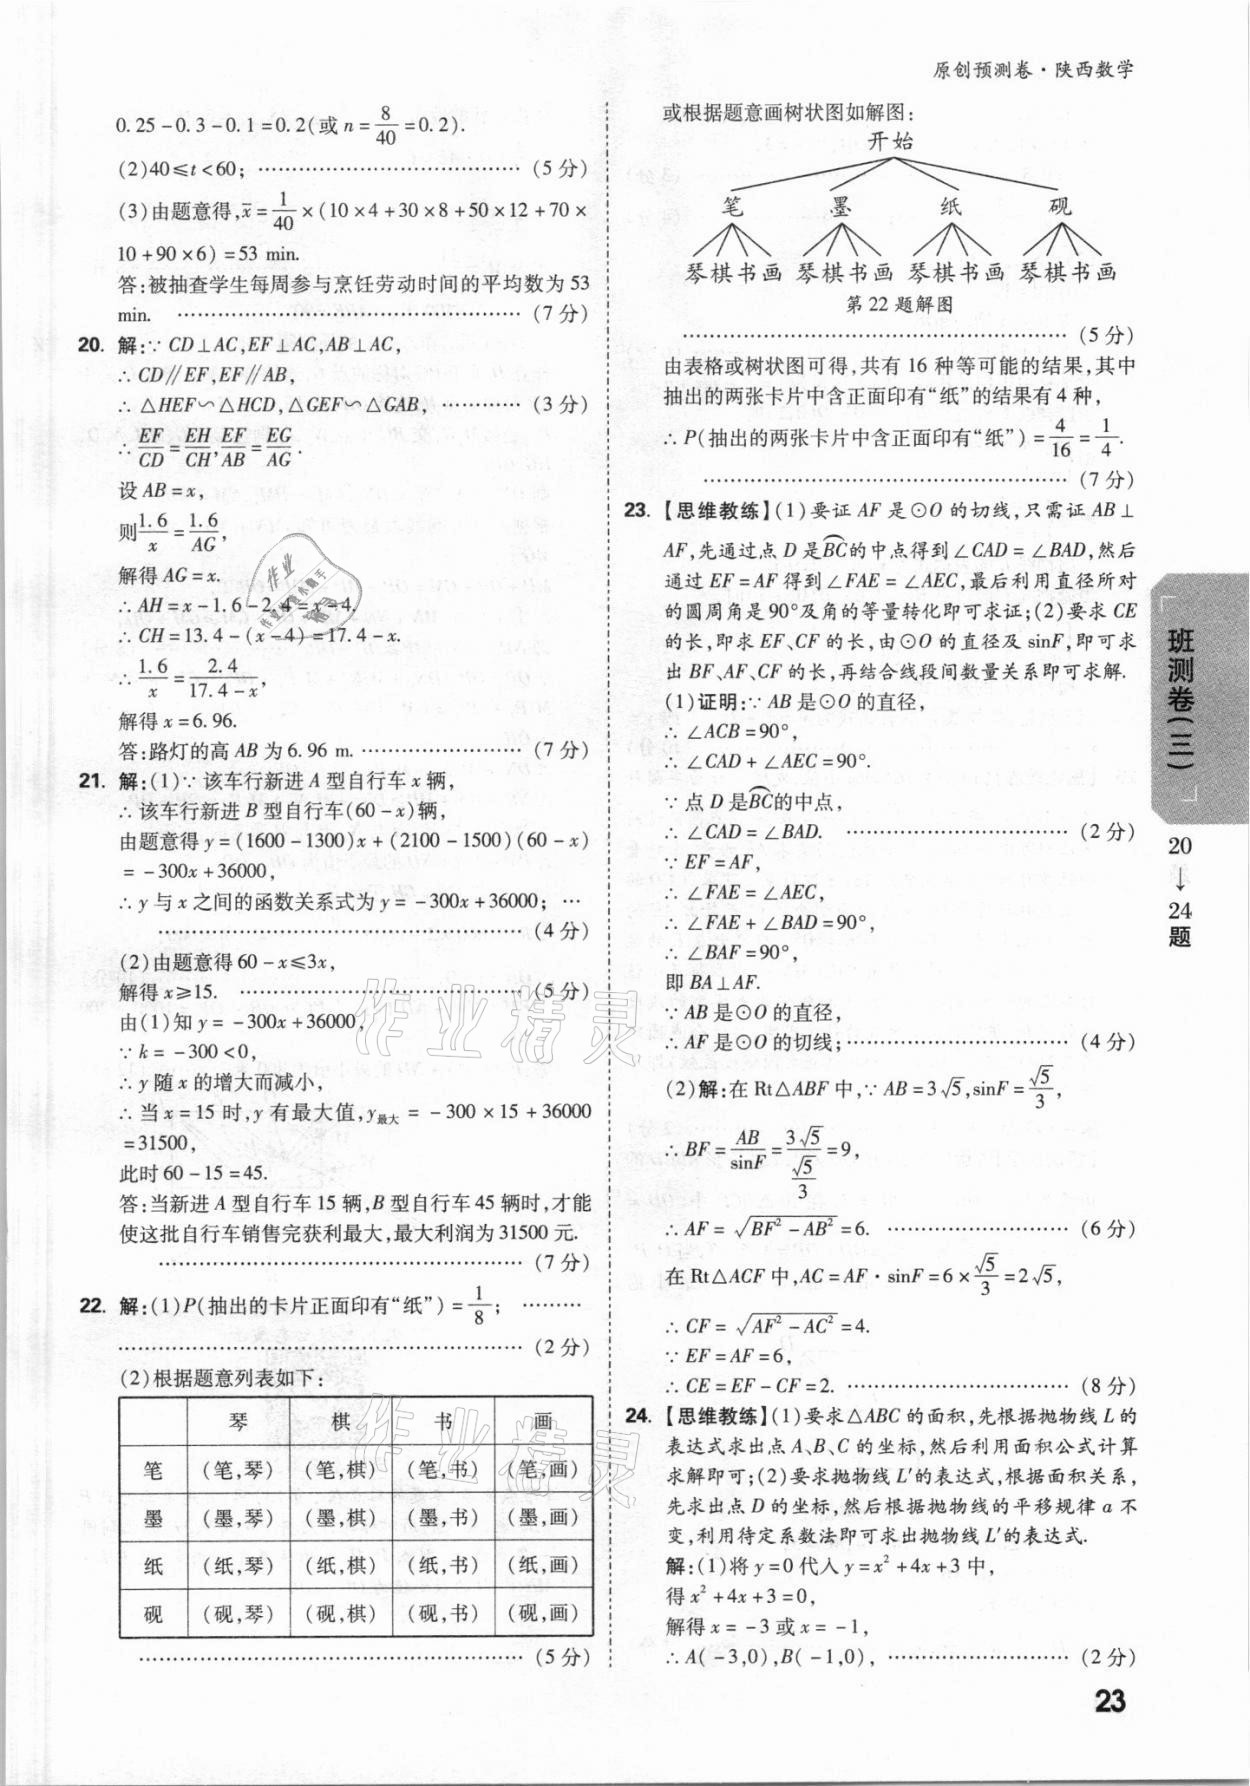 原创预测卷·陕西数学
0.25-0.3-0.1=0.2(或n=8/40=0.2).
(2)40≤t<60; ………………………… (5分)
(3)由题意得,x̄=1/40×(10×4+30×8+50×12+70×
10+90×6)=53 min.
答:被抽查学生每周参与烹饪劳动时间的平均数为53
min. ………………………… (7分)
20. 解:∵CD⊥AC,EF⊥AC,AB⊥AC,
∴CD∥EF,EF∥AB,
∴△HEF∽△HCD,△GEF∽△GAB, ………… (3分)
∴EF/CD=EH/CH,EF/AB=EG/AG.
设AB=x,
则1.6/x=1.6/AG,
解得AG=x.
∴AH=x-1.6-2.4=x-4.
∴CH=13.4-(x-4)=17.4-x.
∴1.6/x=2.4/(17.4-x),
解得x=6.96.
答:路灯的高AB为6.96 m. ………………… (7分)
21. 解:(1)∵该车行新进A型自行车x辆,
∴该车行新进B型自行车(60-x)辆,
由题意得y=(1600-1300)x+(2100-1500)(60-x)
=-300x+36000,
∴y与x之间的函数关系式为y=-300x+36000; …
………………………… (4分)
(2)由题意得60-x≤3x,
解得x≥15. ………………………… (5分)
由(1)知y=-300x+36000,
∵k=-300<0,
∴y随x的增大而减小,
∴当x=15时,y有最大值,y最大=-300×15+36000
=31500,
此时60-15=45.
答:当新进A型自行车15辆,B型自行车45辆时,才能
使这批自行车销售完获利最大,最大利润为31500元.
………………………… (7分)
22. 解:(1)P(抽出的卡片正面印有“纸”)=1/8; ………
………………………… (2分)
(2)根据题意列表如下:
琴 棋 书 画
笔 (笔,琴) (笔,棋) (笔,书) (笔,画)
墨 (墨,琴) (墨,棋) (墨,书) (墨,画)
纸 (纸,琴) (纸,棋) (纸,书) (纸,画)
砚 (砚,琴) (砚,棋) (砚,书) (砚,画)
………………………… (5分)
或根据题意画树状图如解图:
开始
笔 墨 纸 砚
琴棋书画 琴棋书画 琴棋书画 琴棋书画
第22题解图
………………………… (5分)
由表格或树状图可得,共有16种等可能的结果,其中
抽出的两张卡片中含正面印有“纸”的结果有4种,
∴P(抽出的两张卡片中含正面印有“纸”)=4/16=1/4.
………………………… (7分)
23. 【思维教练】(1)要证AF是⊙O的切线,只需证AB⊥
AF,先通过点D是BC⌒的中点得到∠CAD=∠BAD,然后
通过EF=AF得到∠FAE=∠AEC,最后利用直径所对
的圆周角是90°及角的等量转化即可求证;(2)要求CE
的长,即求EF、CF的长,由⊙O的直径及sinF,即可求
出BF、AF、CF的长,再结合线段间数量关系即可求解.
(1)证明:∵AB是⊙O的直径,
∴∠ACB=90°,
∴∠CAD+∠AEC=90°.
∵点D是BC⌒的中点,
∴∠CAD=∠BAD. ………………………… (2分)
∵EF=AF,
∴∠FAE=∠AEC,
∴∠FAE+∠BAD=90°,
∴∠BAF=90°,
即BA⊥AF.
∵AB是⊙O的直径,
∴AF是⊙O的切线; ………………………… (4分)
(2)解:在Rt△ABF中,∵AB=3√5,sinF=√5/3,
∴BF=AB/sinF=3√5/(√5/3)=9,
∴AF=√(BF²-AB²)=6. ………………… (6分)
在Rt△ACF中,AC=AF·sinF=6×√5/3=2√5,
∴CF=√(AF²-AC²)=4.
∵EF=AF=6,
∴CE=EF-CF=2. ………………………… (8分)
24. 【思维教练】(1)要求△ABC的面积,先根据抛物线L的
表达式求出点A、B、C的坐标,然后利用面积公式计算
求解即可;(2)要求抛物线L′的表达式,根据面积关系,
先求出点D的坐标,然后根据抛物线的平移规律a不
变,利用待定系数法即可求出抛物线L′的表达式.
解:(1)将y=0代入y=x²+4x+3中,
得x²+4x+3=0,
解得x=-3或x=-1,
∴A(-3,0),B(-1,0), ………………… (2分)
班测卷(三)
20
→
24
题
23
作业精灵
作业精灵